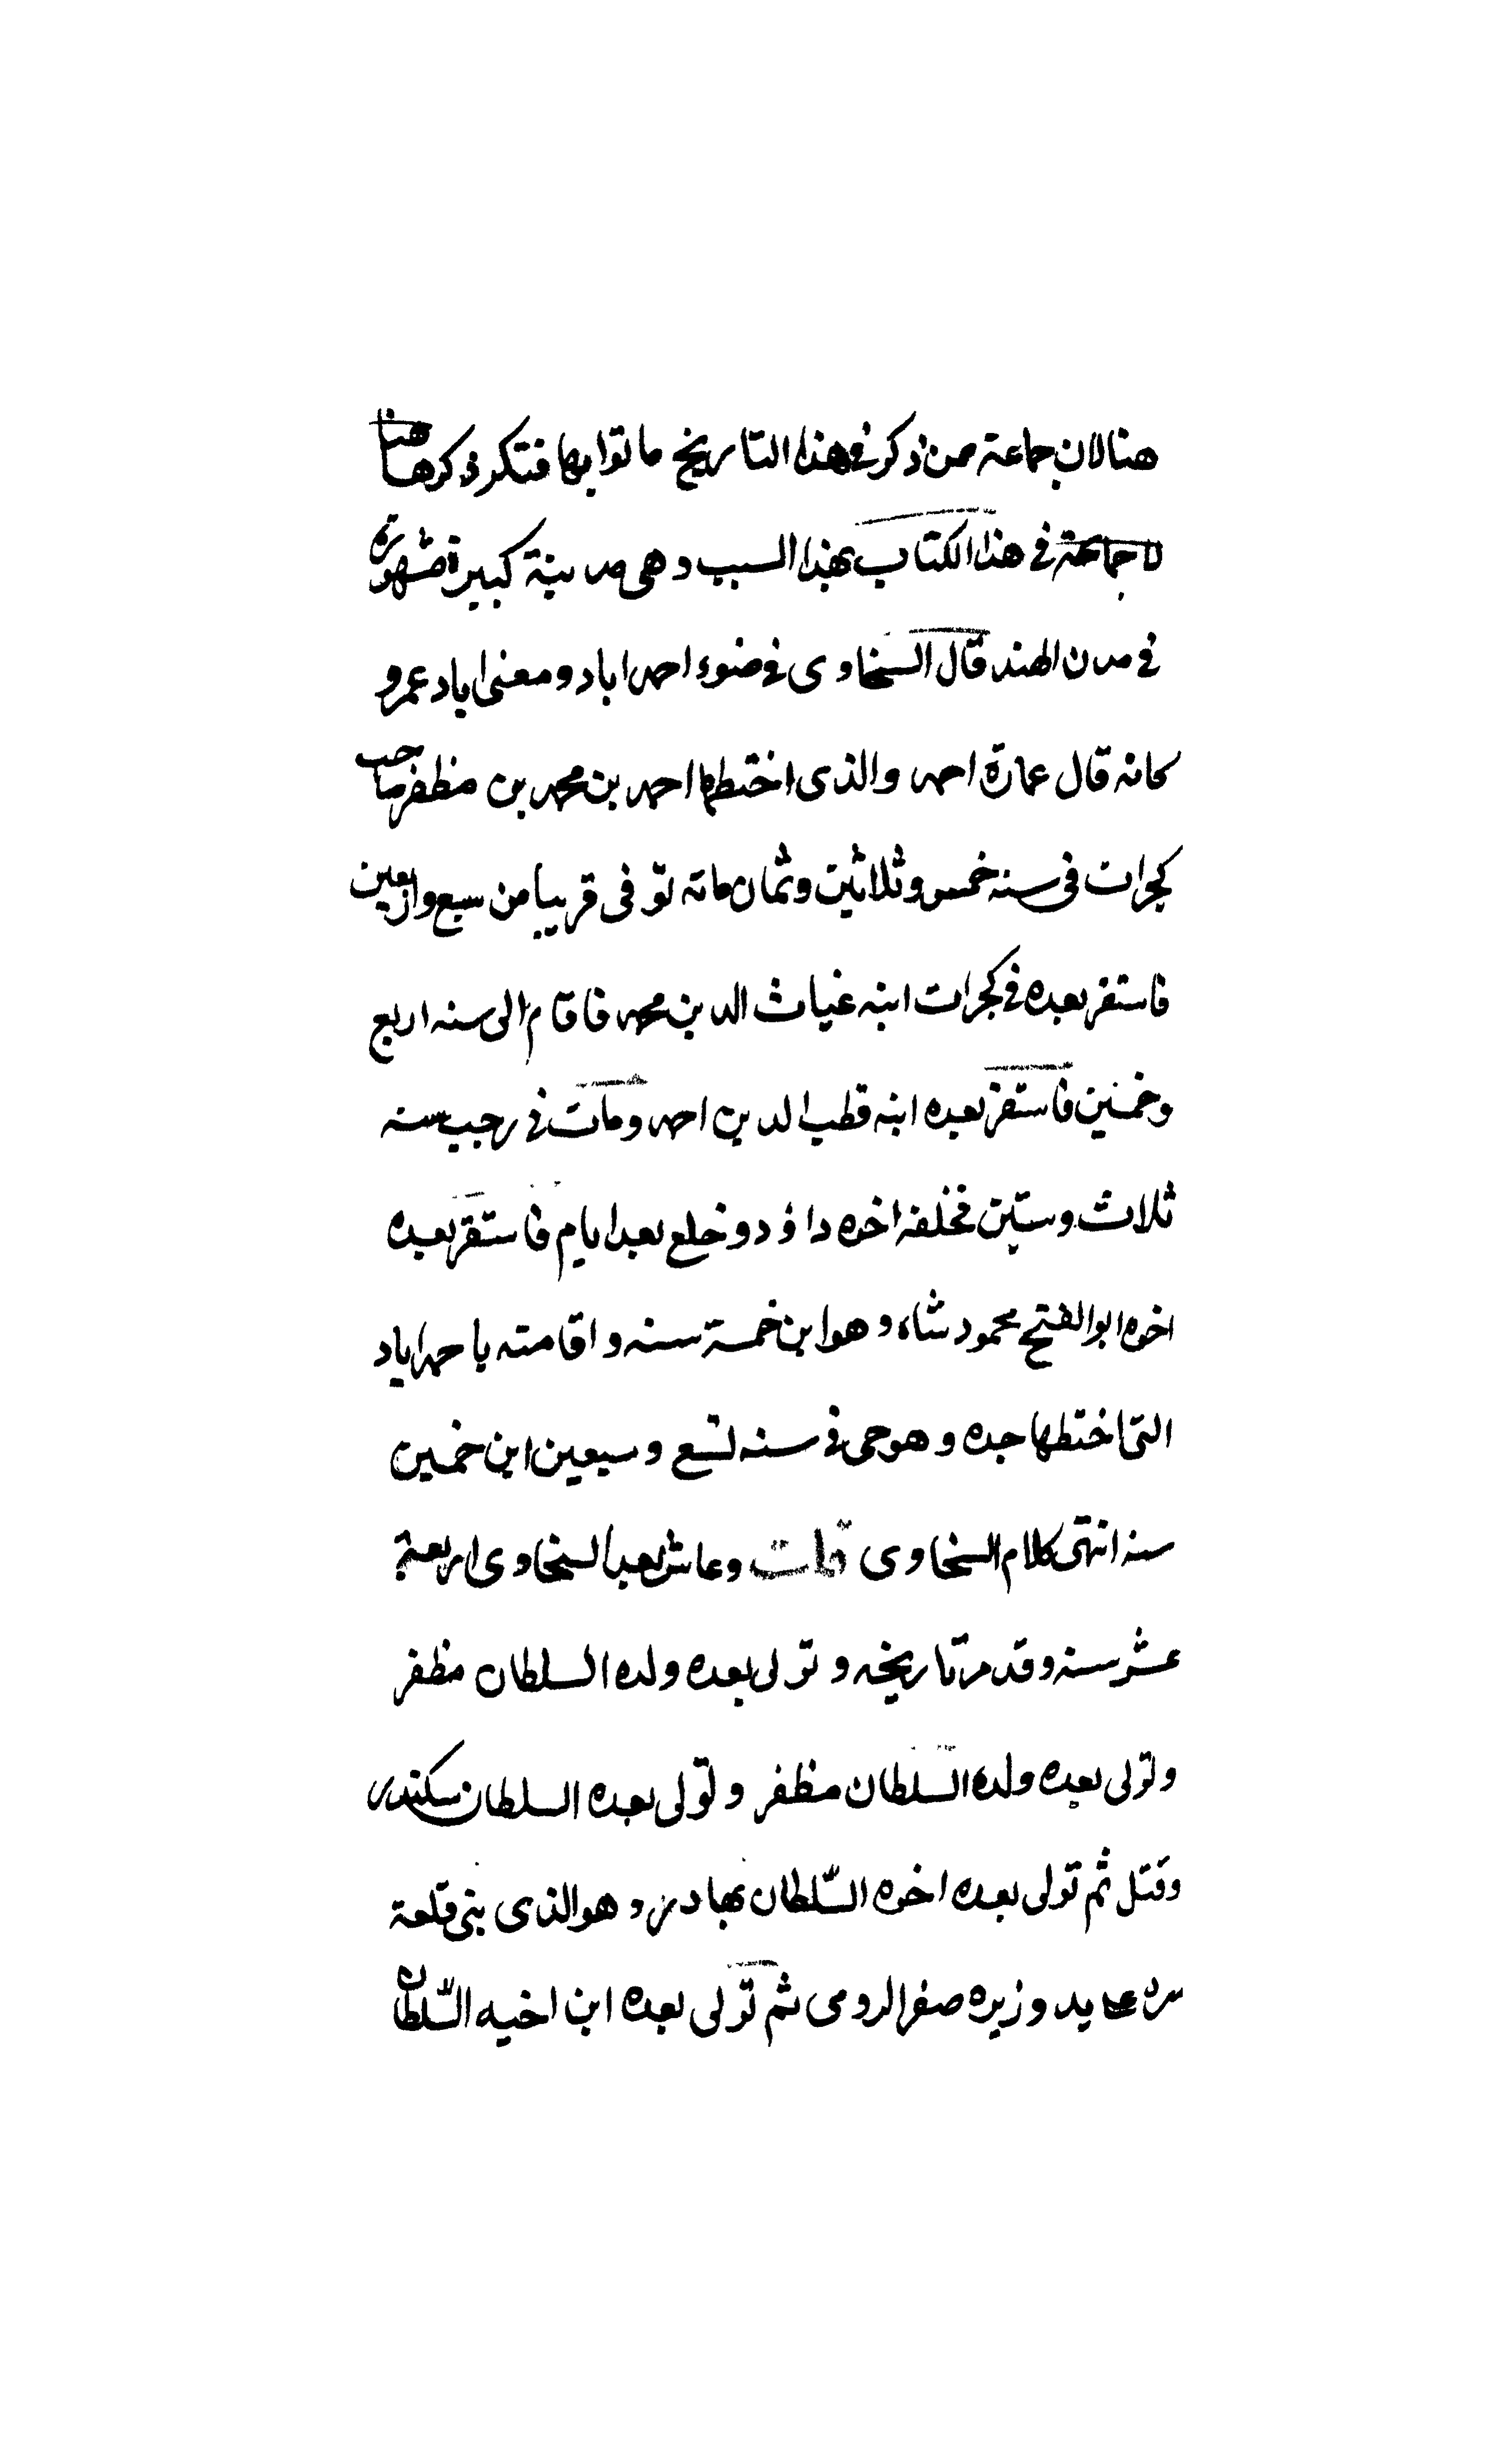 هنا لان جماعة ممن ذكر في هذا التاريخ ماتوا بها فتكرر ذكرها هنا
لا جماعة في هذا الكتاب بهذا السبب وهي مدينة كبيرة مشهورة
في مدن الهند قال السخاوي في ضوء احمداباد ومعنى اباد عمرو
كانه قال عمارة احمد والذي اختطها احمد بن محمد بن مظفر صاحب
كجرات في سنه خمس وثلاثين وثمان مائه توفى قريبا من سبع واربعين
فاستقر بعده في كجرات ابنه غياث الدين محمد فاقام الى سنه اربع
وخمسين فاستقر بعده ابنه قطب الدين احمد ومات في رجب سنه
ثلاث وستين فخلفه اخوه داؤد وخلع بعد ايام فاستقر بعده
اخوه ابو الفتح محمود شاه وهو ابن خمسة سنه واقامته باحمداباد
التي اختطها جده وهو حي في سنه تسع وسبعين ابن خمسين
سنه انتهى كلام السخاوي قلت وعاش بعد السخاوي اربعة
عشر سنه وقد مر تاريخه وتولى بعده ولده السلطان مظفر
وتولى بعده ولده السلطان مظفر وتولى بعده السلطان سكندر
وقتل ثم تولى بعده اخوه السّلطان بهادر وهو الذي بنى قلعة
وزيره صفر الرومي ثم تولى بعده ابن اخيه السّلطان